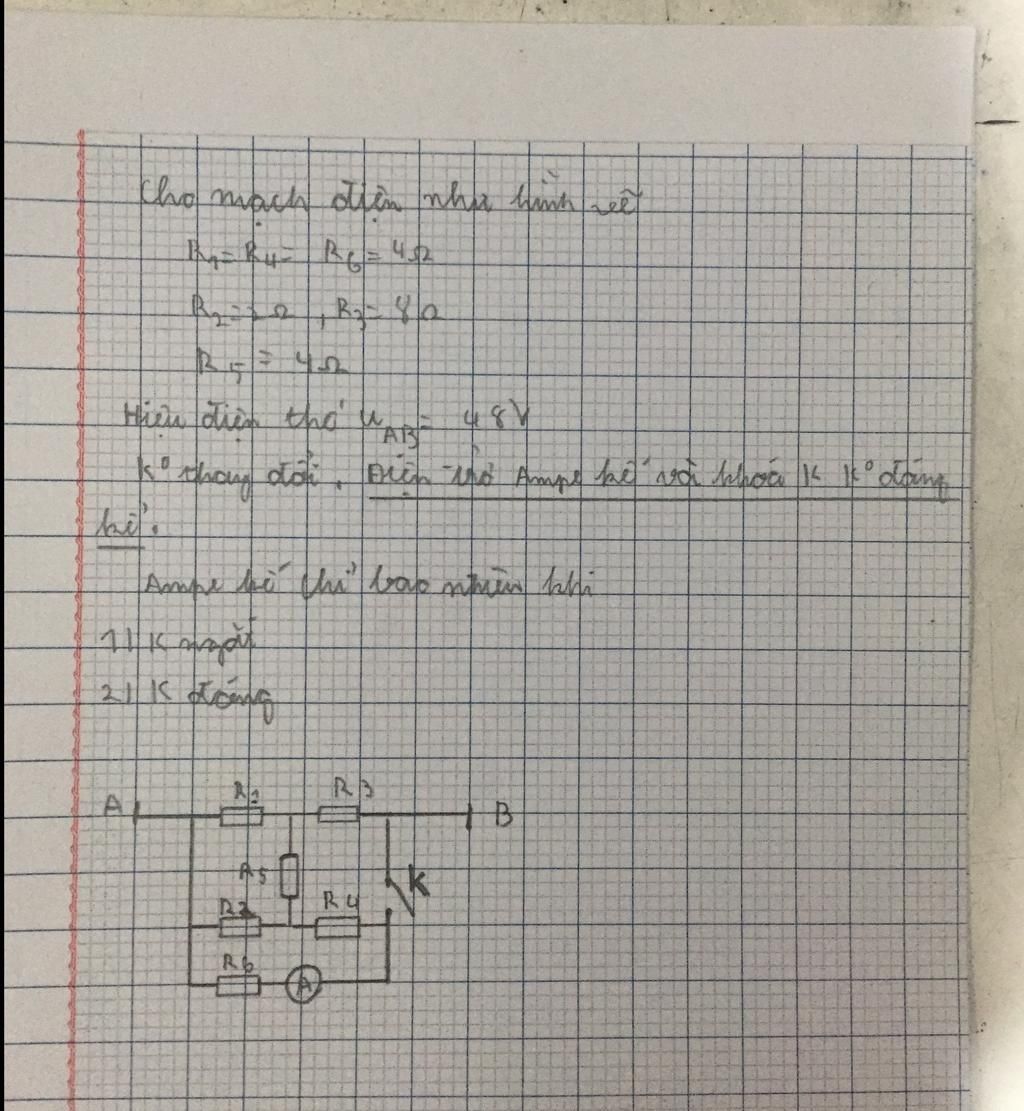 Cho mạch điện như hình vẽ
R1 = R4 = R6 = 4Ω
R2 = 2Ω , R3 = 8Ω
R5 = 4Ω
Hiệu điện thế UAB = 48V
K° thay đổi. Điện trở Ampe kế và khoá K K° đáng
kể.
Ampe kế chỉ bao nhiêu khi
1/ K ngắt
2/ K đóng
A R1 R3 B
R5 K
R2 R4
R6 A